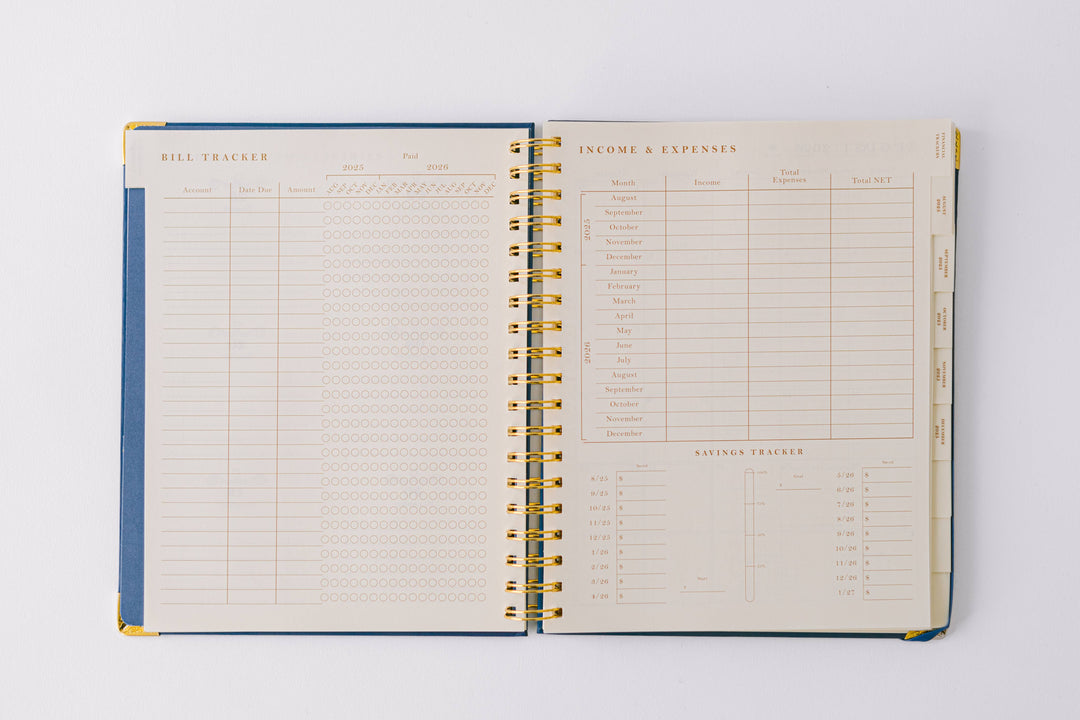 BILL TRACKER
Paid
2025 2026
Account Date Due Amount AUG SEP OCT NOV DEC JAN FEB MAR APR MAY JUN JUL AUG SEP OCT NOV DEC
INCOME & EXPENSES
Month Income Total Expenses Total NET
2025
August
September
October
November
December
2026
January
February
March
April
May
June
July
August
September
October
November
December
SAVINGS TRACKER
Saved
8/25 $
9/25 $
10/25 $
11/25 $
12/25 $
1/26 $
2/26 $
3/26 $
4/26 $
Start
$
100%
75%
50%
25%
Goal
$
Saved
5/26 $
6/26 $
7/26 $
8/26 $
9/26 $
10/26 $
11/26 $
12/26 $
1/27 $
FINANCIAL TRACKERS
AUGUST 2025
SEPTEMBER 2025
OCTOBER 2025
NOVEMBER 2025
DECEMBER 2025